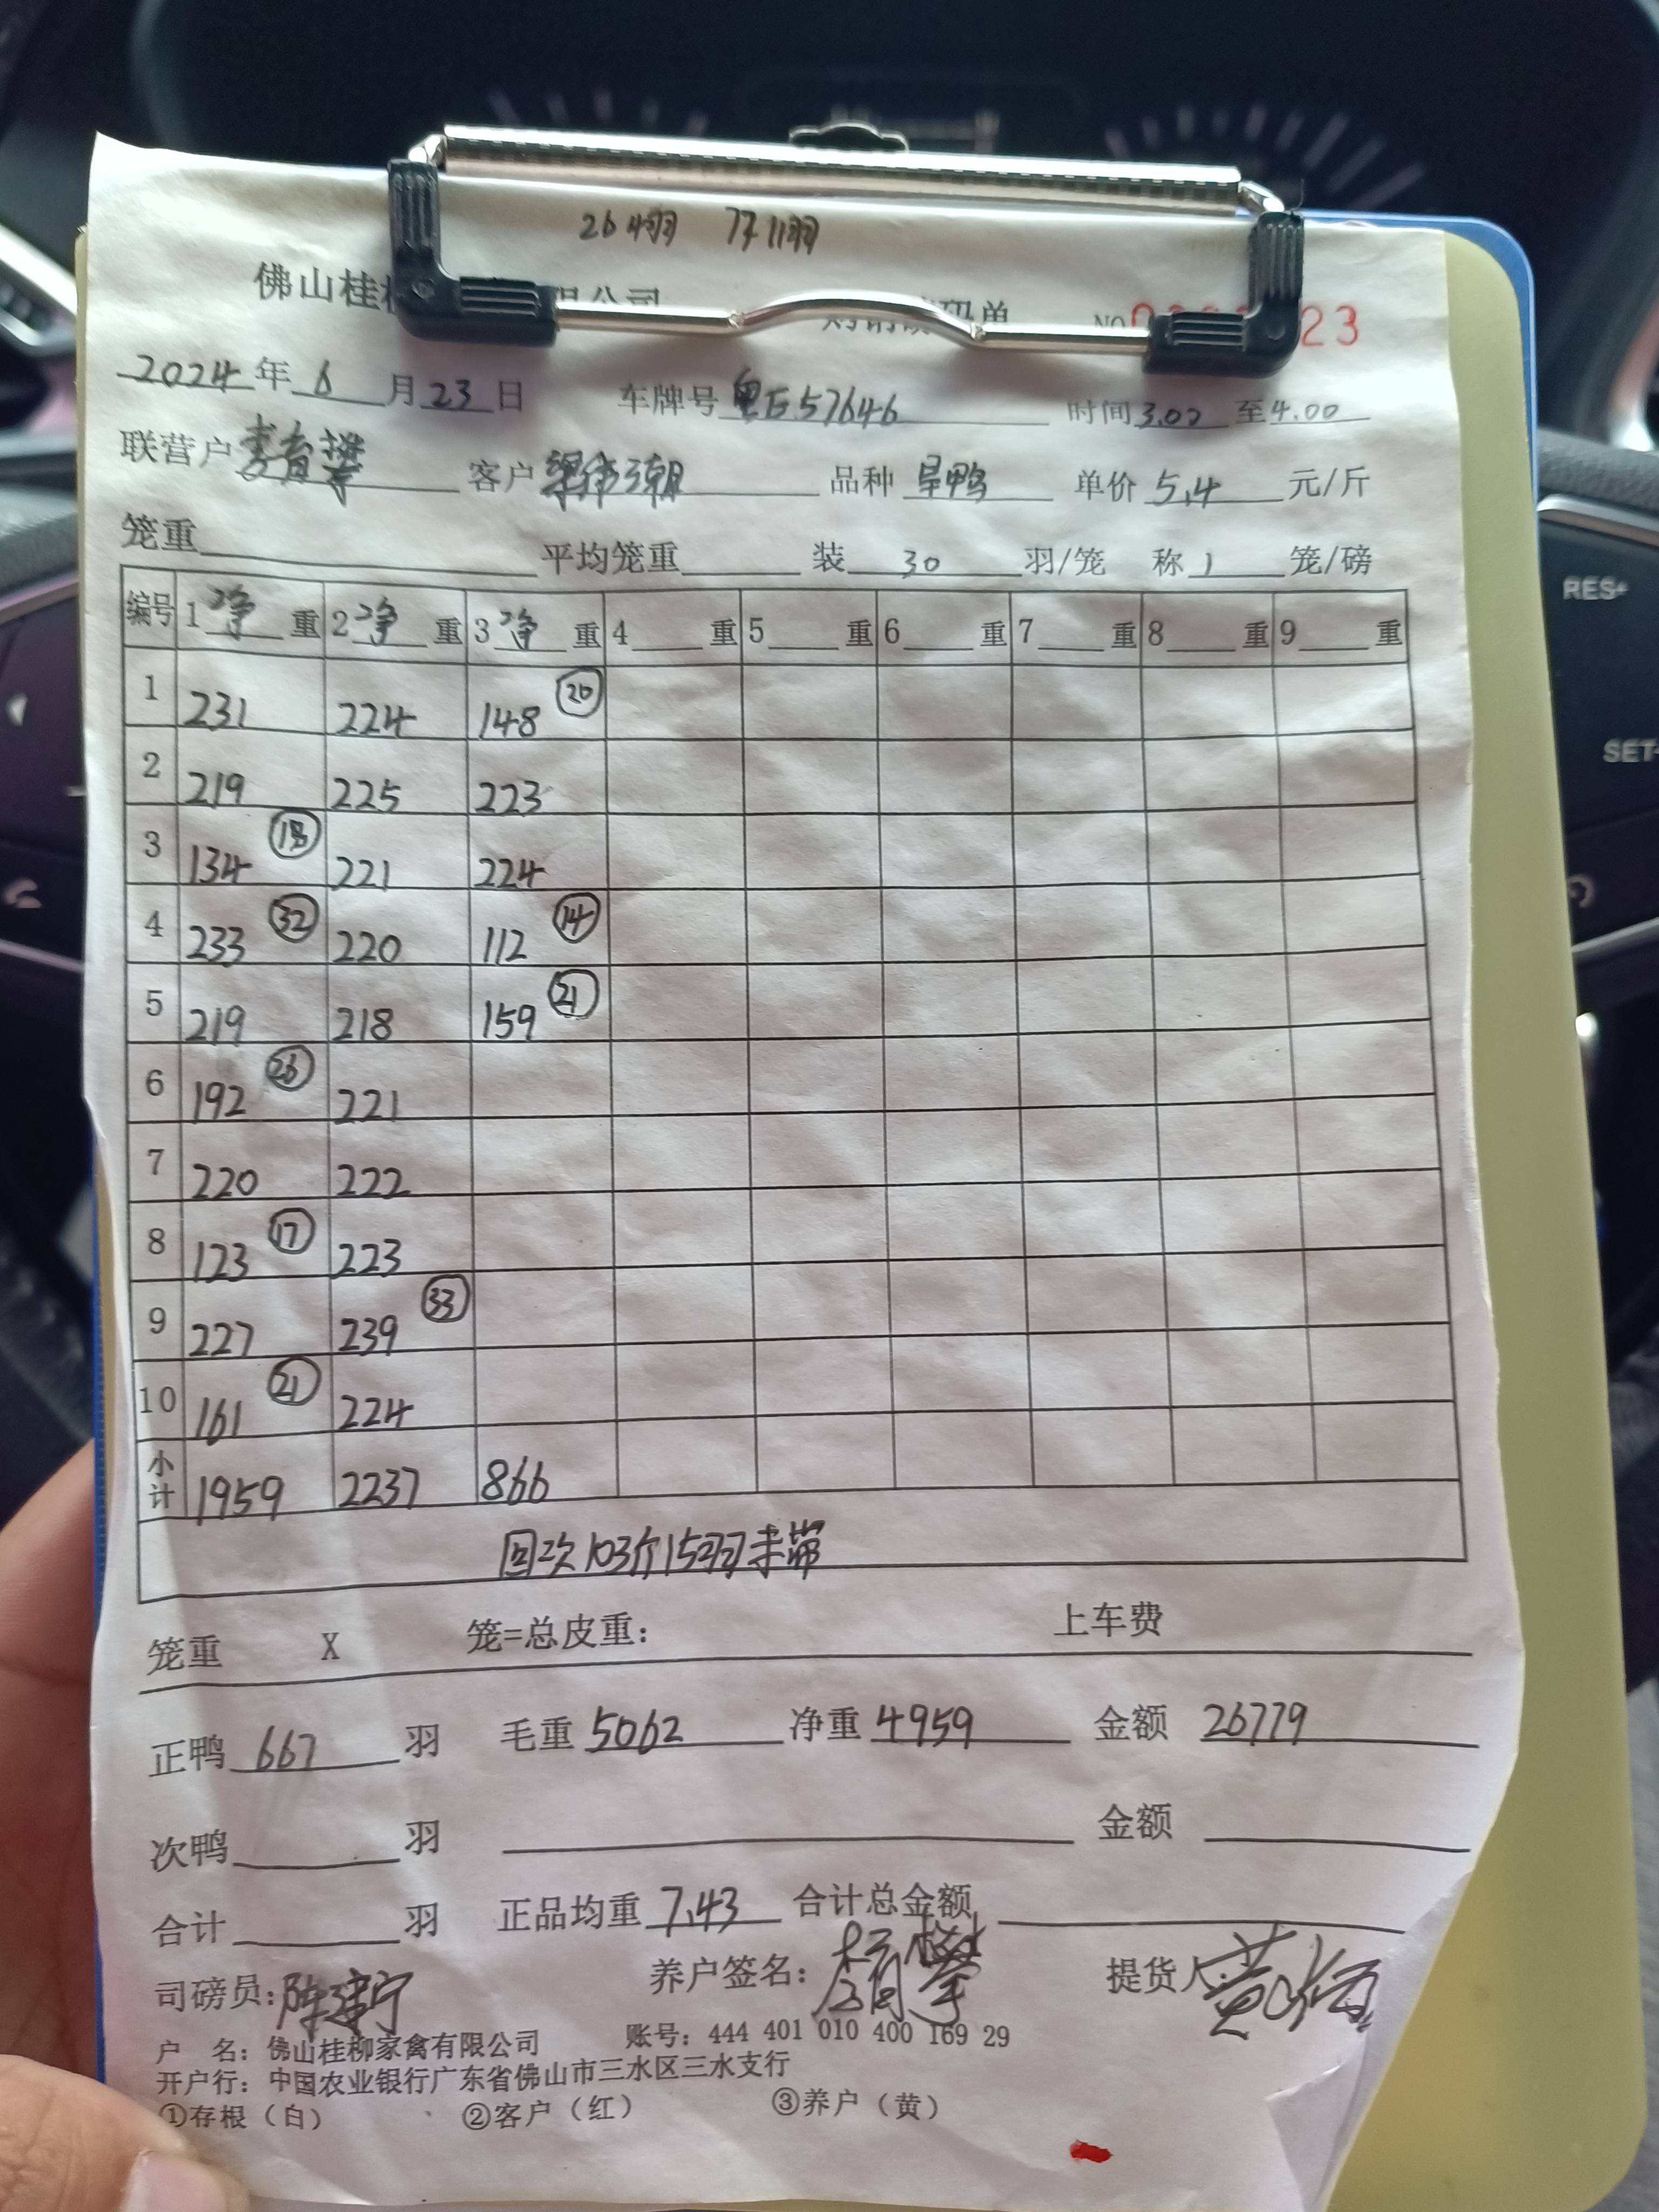 佛山桂 限公司 购销磅码单 NO 23
2024年6月23日 车牌号粤E57646 时间3.00至4.00
联营户 客户梁伟潮 品种旱鸭 单价5.4元/斤
笼重 平均笼重 装30羽/笼 称1笼/磅
编号 1净重 2净重 3净重 4重 5重 6重 7重 8重 9重
1 231 224 148 ⑳
2 219 225 223
3 134 ⑱ 221 224
4 233 ㉜ 220 112 ⑭
5 219 218 159 ㉑
6 192 ㉖ 221
7 220 222
8 123 ⑰ 223
9 227 239 ㉝
10 161 ㉑ 224
小计 1959 2237 866
回次103斤15羽未带
笼重 X 笼=总皮重: 上车费
正鸭667羽 毛重5062 净重4959 金额26779
次鸭 羽 金额
合计 羽 正品均重7.43 合计总金额
司磅员: 养户签名: 提货人:
户 名: 佛山桂柳家禽有限公司 账号: 444 401 010 400 169 29
开户行: 中国农业银行广东省佛山市三水区三水支行
①存根(白) ②客户(红) ③养户(黄)
RES+
SET-